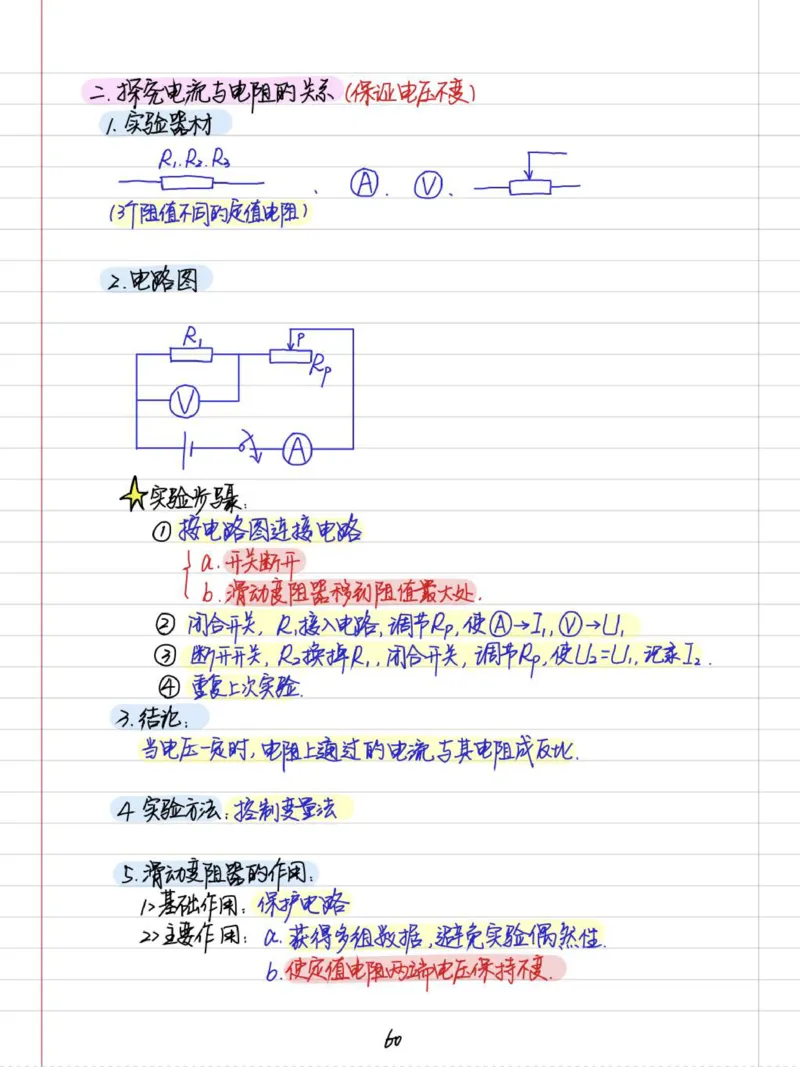 二.探究电流与电阻的关系(保证电压不变)
1.实验器材
R₁.R₂.R₃
、 A 、 V 、
(3个阻值不同的定值电阻)
2.电路图
R₁ P
Rp
V
A
实验步骤:
① 按电路图连接电路
a.开关断开
b.滑动变阻器移到阻值最大处.
② 闭合开关, R₁接入电路,调节Rp,使Ⓐ→I₁,Ⓥ→U₁
③ 断开开关, R₂换掉R₁,闭合开关,调节Rp,使U₂=U₁,记录I₂.
④ 重复上次实验.
3.结论:
当电压一定时,电阻上通过的电流与其电阻成反比.
4 实验方法:控制变量法
5.滑动变阻器的作用:
1>基础作用:保护电路
2>主要作用: a.获得多组数据,避免实验偶然性.
b.使定值电阻两端电压保持不变.
60